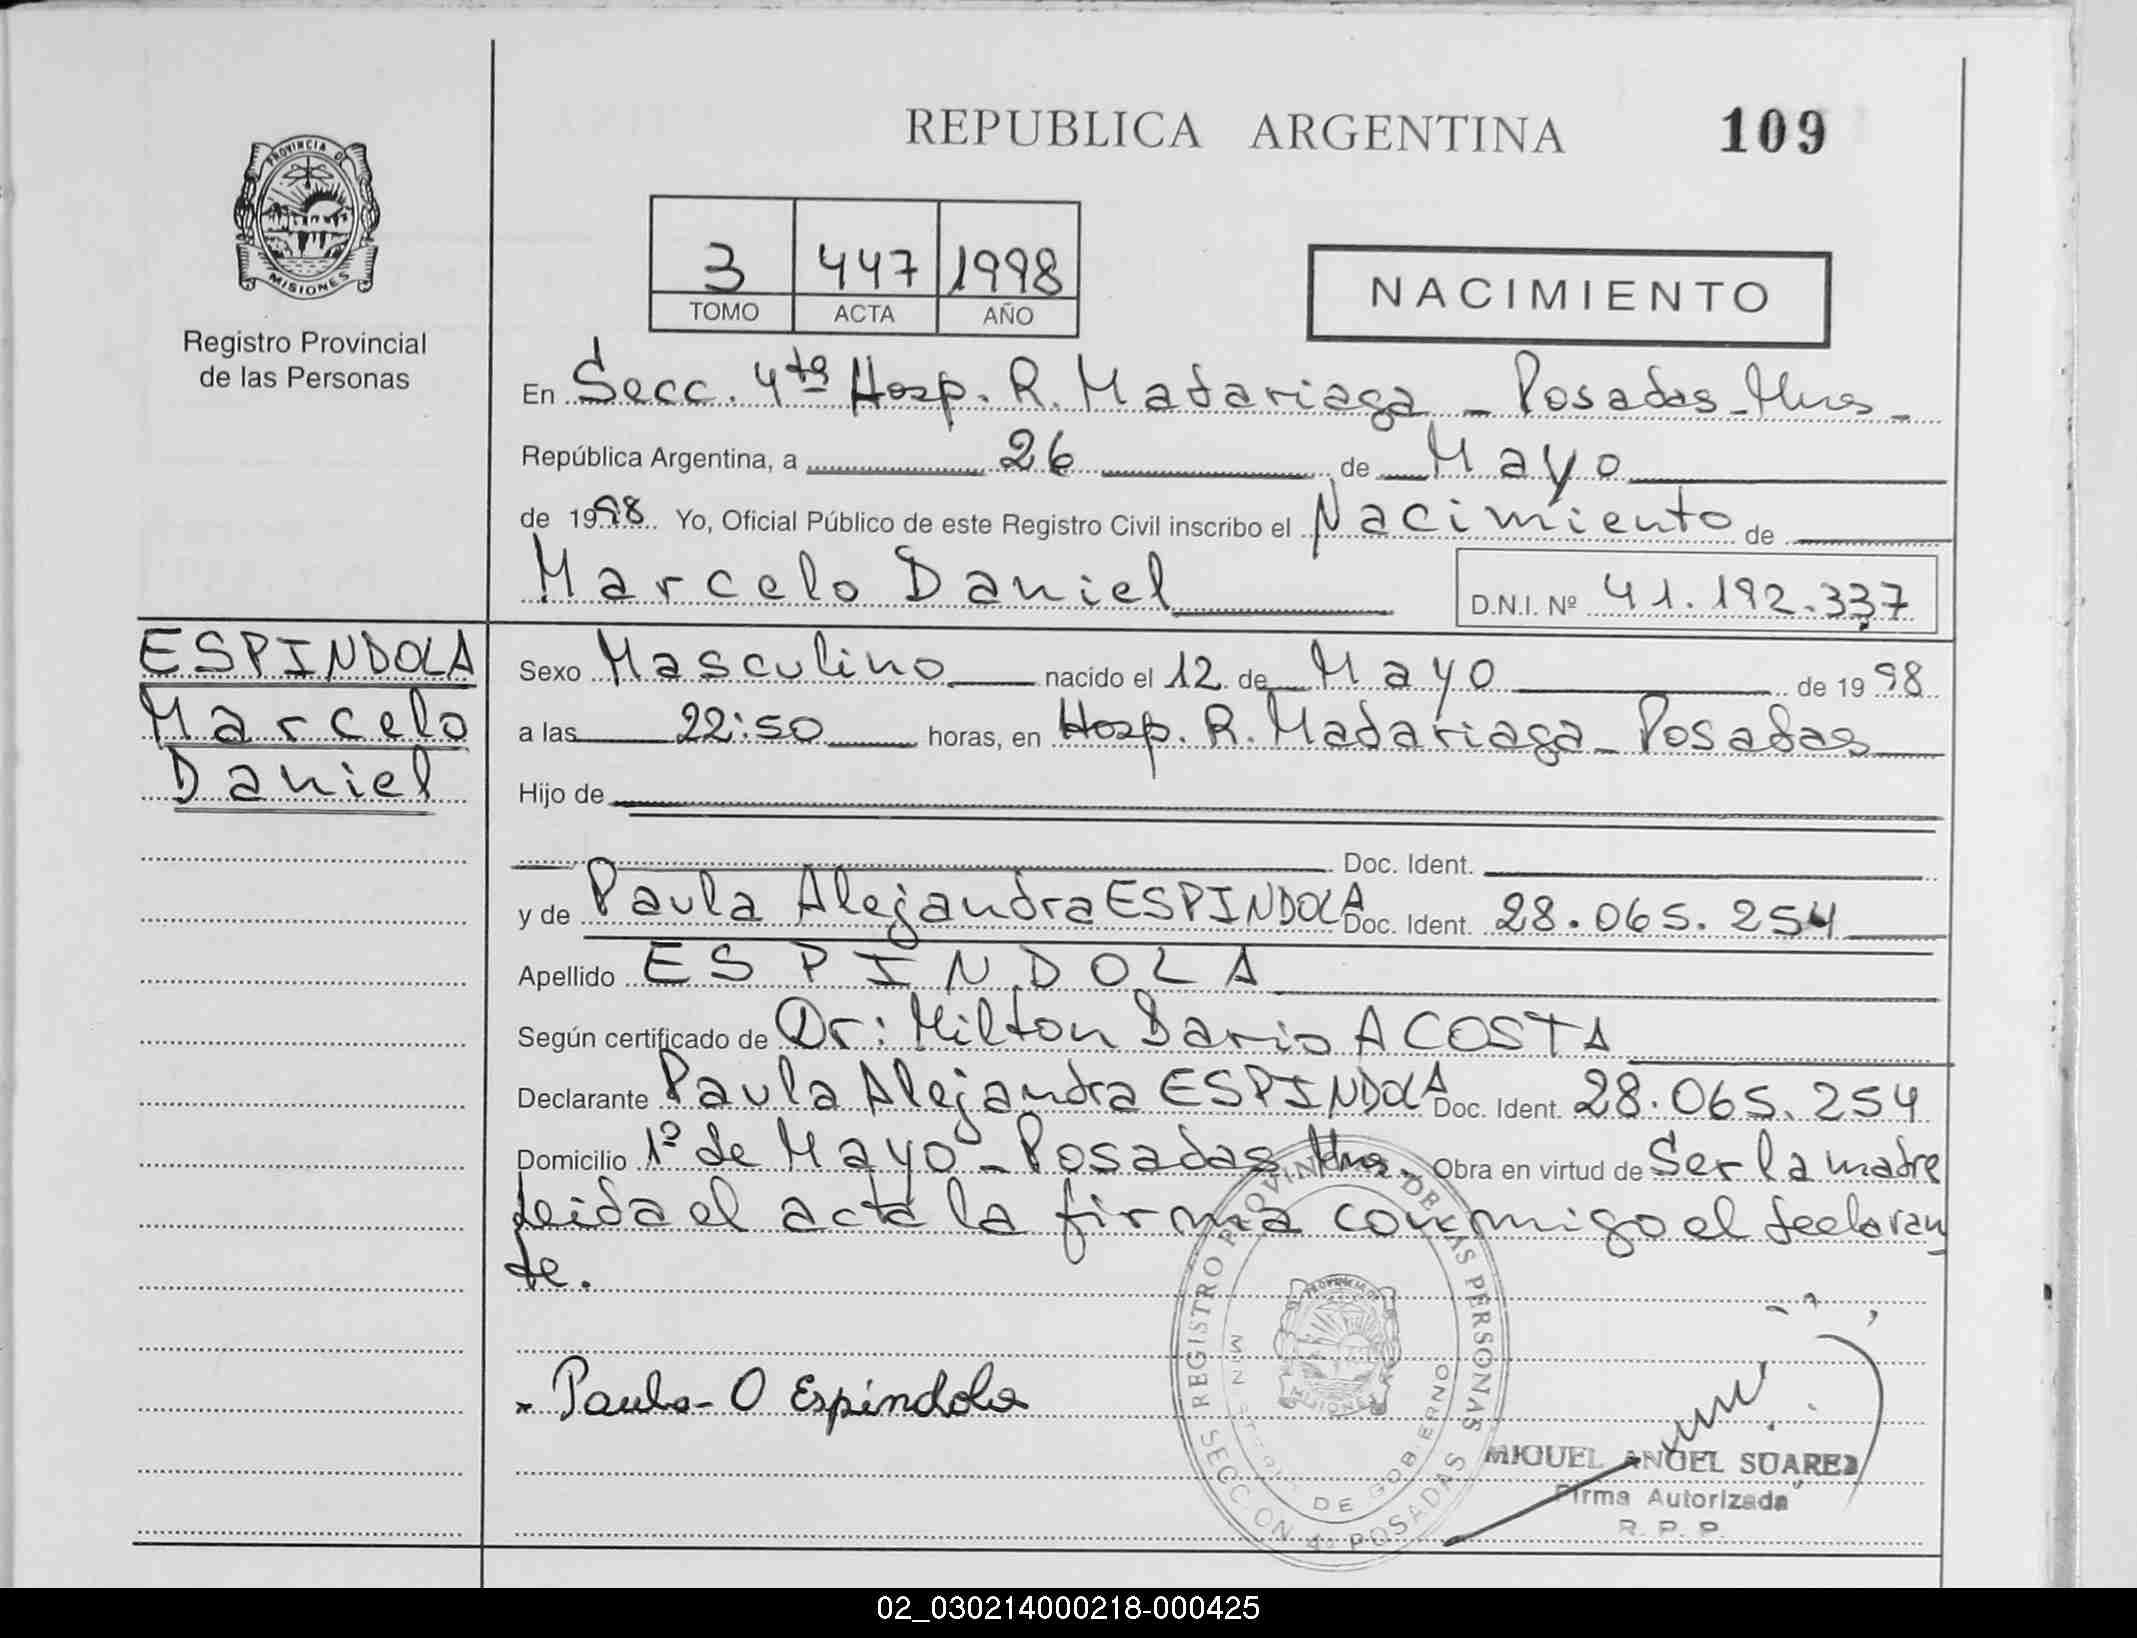 REPUBLICA ARGENTINA 109
PROVINCIA DE
MISIONES
Registro Provincial
de las Personas
3 447 1998
TOMO ACTA AÑO
NACIMIENTO
En Secc. 4ta Hosp. R. Madariaga - Posadas - Mnes -
República Argentina, a 26 de Mayo
de 1998. Yo, Oficial Público de este Registro Civil inscribo el Nacimiento de
Marcelo Daniel D.N.I. Nº 41.192.337
ESPINDOLA
Marcelo
Daniel
Sexo Masculino nacido el 12 de Mayo de 1998
a las 22:50 horas, en Hosp. R. Madariaga - Posadas
Hijo de
Doc. Ident.
y de Paula Alejandra ESPINDOLA Doc. Ident. 28.065.254
Apellido ESPINDOLA
Según certificado de Dr: Milton Dario ACOSTA
Declarante Paula Alejandra ESPINDOLA Doc. Ident. 28.065.254
Domicilio 1º de Mayo - Posadas Mnes. Obra en virtud de Ser la madre
Leida el acta la firma conmigo el declaran
te.
Paula O Espíndola
REGISTRO PROVINCIAL DE LAS PERSONAS
MINISTERIO DE GOBIERNO
SECCION 4º POSADAS
MIGUEL ANGEL SUAREZ
Firma Autorizada
R. P. P.
02_030214000218-000425